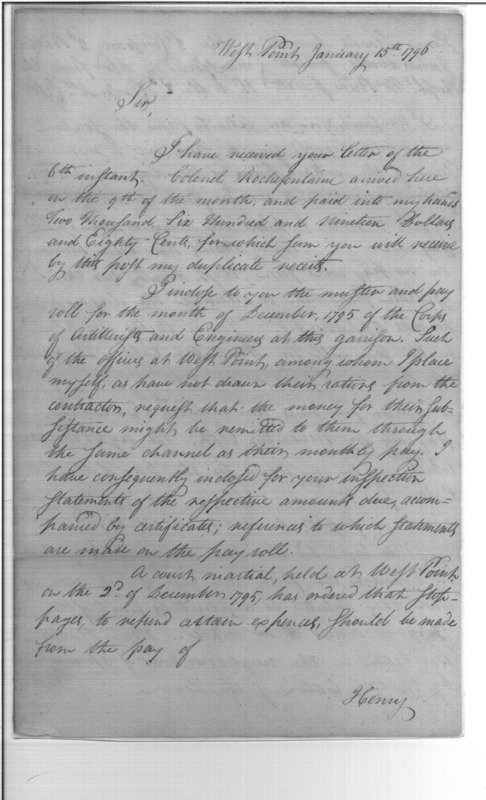 West Point January 15th 1796
Sir,
I have received your letter of the
6th instant. Colonel Rochefontaine arrived here
on the 9th of the month, and paid into my hands
Two Thousand Six Hundred and Nineteen Dollars
and Eighty Cents, for which sum you will receive
by this post my duplicate receits.
I inclose to you the muster and pay
roll for the month of December, 1795 of the Corps
of Artillerists and Engineers at this garrison. Such
of the officers at West Point, among whom I place
myself, as have not drawn their rations from the
contractor, request that the money for their sub-
sistance might be remitted to them through
the same channel as their monthly pay. I
have consequently inclosed for your inspection
statements of the respective amounts due, accom-
panied by certificates; references to which statements
are made on the pay roll.
A court martial, held at West Point,
on the 2d of December 1795, has ordered that stop-
pages, to refund certain expences, should be made
from the pay of
Henry